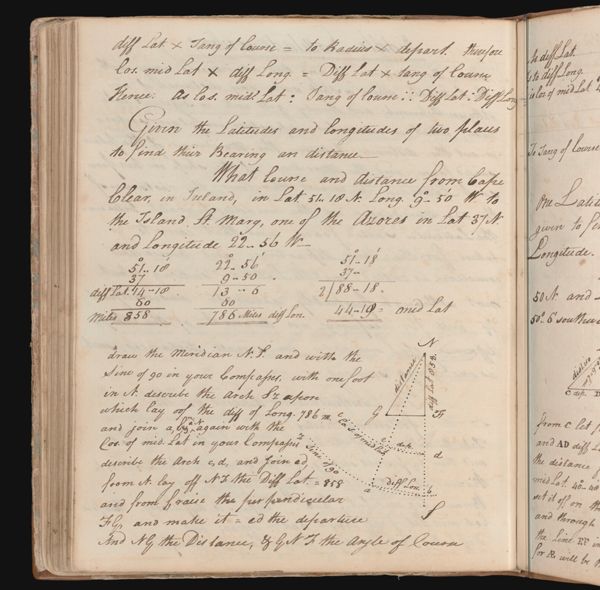 diff Lat × Tang of Course = to Radius × depart. therefore
Cos. mid Lat × diff Long. = Diff Lat × tang of Course
Hence: As Cos. mid. Lat : Tang of Course :: Diff Lat : Diff Long
Given the Latitudes and Longitudes of two places
to find their Bearing an distance
What Course and distance from Cape
Clear, in Ireland, in Lat 51..18 N. Long. 9°..50' W to
the Island St. Mary, one of the Azores in Lat 37 N
and Longitude 22°..56' W
51°..18 22°..56' 51°..18'
37 9..50 37..
diff Lat. 14..18 13..6 2/88..18.
60 60 44..19 = mid Lat
Miles 858 786 Miles diff Lon.
draw the Meridian N.S. and with the
Sine of 90 in your Compasses, with one foot
in N. describe the Arch upon
which lay of the diff of Long. 786 m.
and join a, again with the
Cos. of mid. Lat in your Compasses
describe the Arch c, d, and join cd
from N. lay off N F the Diff Lat. = 858
and from F, raise the perpendicular
F G, and make it = cd the departure
And N G the Distance, & G N F the Angle of Course
N
distance
diff Lat 858.
G
F
c
Co. S. of mid Lat
dep.
d
Sine of 90
diff Lon.
a
b
S
to diff Lat
to diff Long.
is Cos of mid Lat
To Tang of Course
One Latit
given to fin
Longitude.
50 N. and
50°. 6 southw
distance
dep. D
from C let f
and AD diff L
the distance
mid Lat. 4°-48
set it off on th
and through
the line EF in
for R. will be